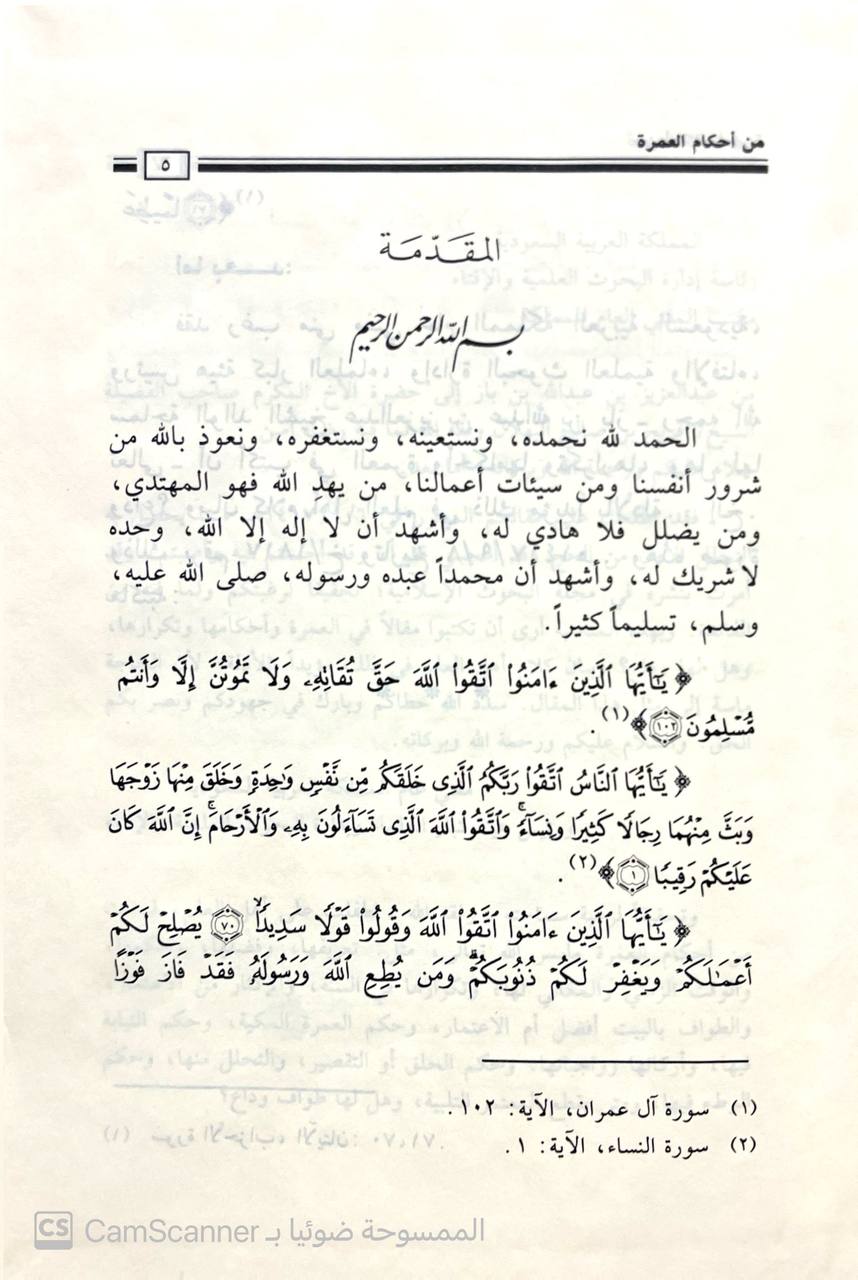 من أحكام العمرة
٥
المقدّمة
بسم الله الرحمن الرحيم
الحمد لله نحمده، ونستعينه، ونستغفره، ونعوذ بالله من
شرور أنفسنا ومن سيئات أعمالنا، من يهدِ الله فهو المهتدي،
ومن يضلل فلا هادي له، وأشهد أن لا إله إلا الله، وحده
لا شريك له، وأشهد أن محمداً عبده ورسوله، صلى الله عليه،
وسلم، تسليماً كثيراً.
﴿ يَـٰٓأَيُّهَا ٱلَّذِينَ ءَامَنُوا۟ ٱتَّقُوا۟ ٱللَّهَ حَقَّ تُقَاتِهِۦ وَلَا تَمُوتُنَّ إِلَّا وَأَنتُم
مُّسْلِمُونَ ١٠٢﴾(١).
﴿ يَـٰٓأَيُّهَا ٱلنَّاسُ ٱتَّقُوا۟ رَبَّكُمُ ٱلَّذِى خَلَقَكُم مِّن نَّفْسٍ وَٰحِدَةٍ وَخَلَقَ مِنْهَا زَوْجَهَا
وَبَثَّ مِنْهُمَا رِجَالًا كَثِيرًا وَنِسَآءً ۚ وَٱتَّقُوا۟ ٱللَّهَ ٱلَّذِى تَسَآءَلُونَ بِهِۦ وَٱلْأَرْحَامَ ۚ إِنَّ ٱللَّهَ كَانَ
عَلَيْكُمْ رَقِيبًا ١﴾(٢).
﴿ يَـٰٓأَيُّهَا ٱلَّذِينَ ءَامَنُوا۟ ٱتَّقُوا۟ ٱللَّهَ وَقُولُوا۟ قَوْلًا سَدِيدًا ۙ ٧٠ يُصْلِحْ لَكُمْ
أَعْمَـٰلَكُمْ وَيَغْفِرْ لَكُمْ ذُنُوبَكُمْ ۗ وَمَن يُطِعِ ٱللَّهَ وَرَسُولَهُۥ فَقَدْ فَازَ فَوْزًا
(١) سورة آل عمران، الآية: ١٠٢.
(٢) سورة النساء، الآية: ١.
CS CamScanner الممسوحة ضوئيا بـ